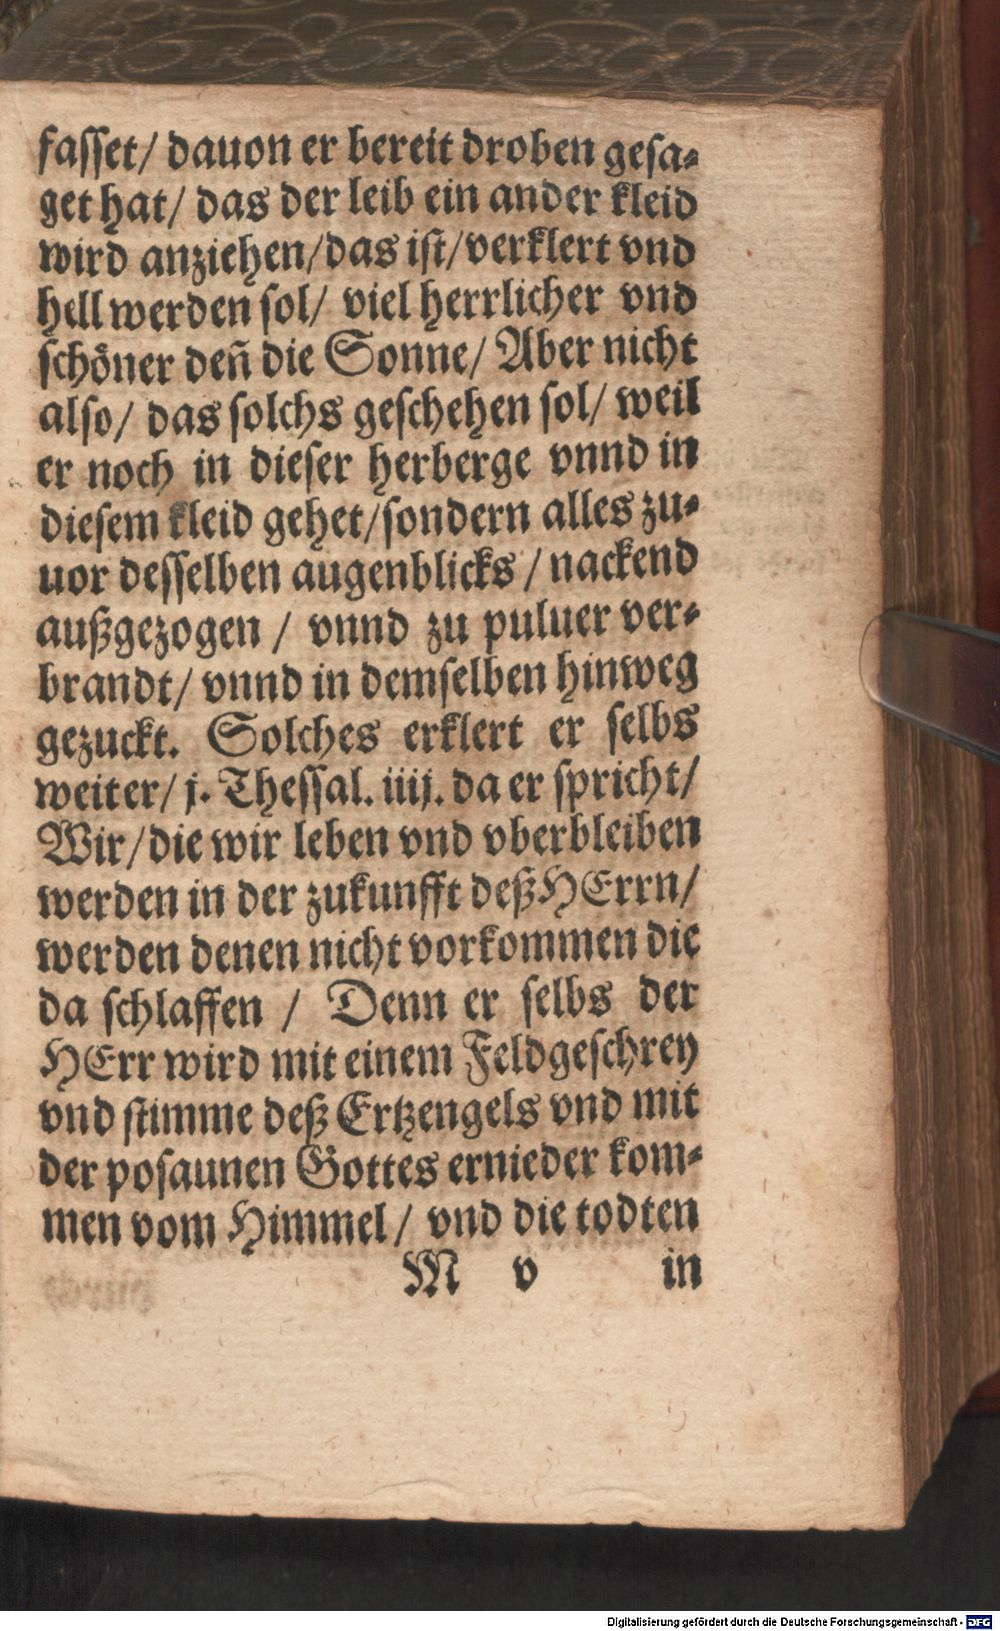 fasset/ dauon er bereit droben gesa-
get hat/ das der leib ein ander kleid
wird anziehen/das ist/verklert vnd
hell werden sol/ viel herrlicher vnd
schöner deñ die Sonne/ Aber nicht
also/ das solchs geschehen sol/ weil
er noch in dieser herberge vnnd in
diesem kleid gehet/sondern alles zu-
uor desselben augenblicks / nackend
außgezogen / vnnd zu puluer ver-
brandt/ vnnd in demselben hinweg
gezuckt. Solches erklert er selbs
weiter/ j. Thessal. iiij. da er spricht/
Wir/die wir leben vnd vberbleiben
werden in der zukunfft deß HErrn/
werden denen nicht vorkommen die
da schlaffen / Denn er selbs der
HErr wird mit einem Feldgeschrey
vnd stimme deß Ertzengels vnd mit
der posaunen Gottes ernieder kom-
men vom Himmel/ vnd die todten
M v in
Digitalisierung gefördert durch die Deutsche Forschungsgemeinschaft - DFG